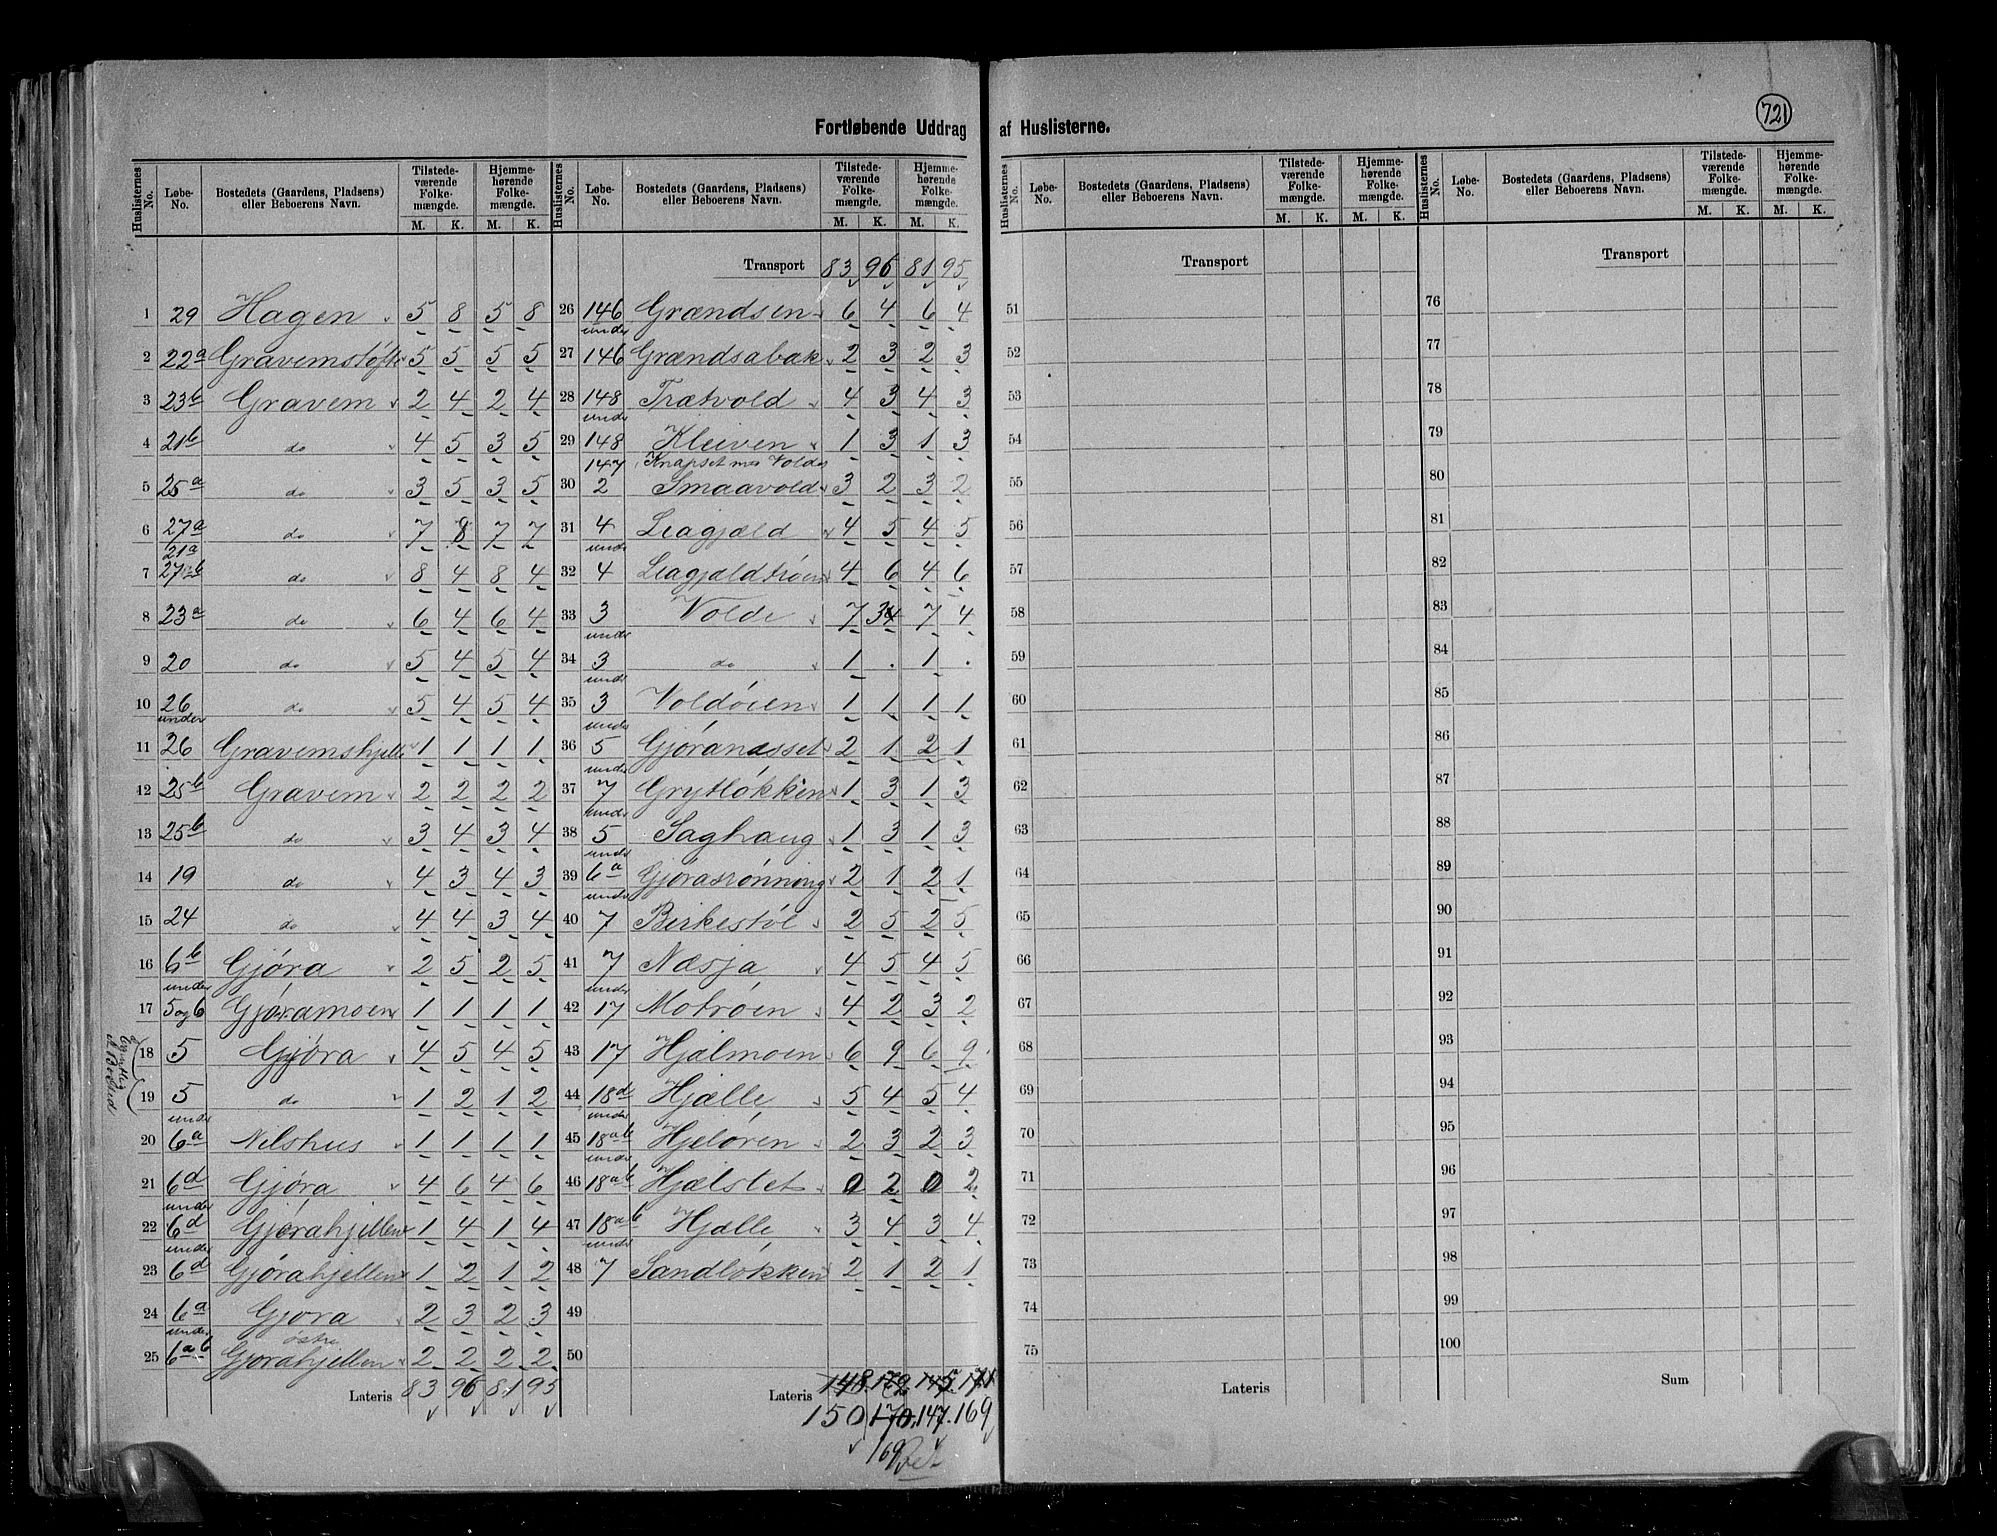 721
Fortløbende Uddrag af Huslisterne.
Huslisternes No. Løbe-No. Bostedets (Gaardens, Pladsens) eller Beboerens Navn. Tilstedeværende Folkemængde. Hjemmehørende Folkemængde.
M. K. M. K.
1 29 Hagen 5 8 5 8
2 22a Gravemstøft 5 5 5 5
3 23b Gravem 2 4 2 4
4 21b do 4 5 3 5
5 25a do 3 5 3 5
6 27a do 7 8 7 7
21a
7 27b do 8 4 8 4
8 23a do 6 4 6 4
9 20 do 5 4 5 4
10 26 do 5 4 5 4
under
11 26 Gravemshjelle 1 1 1 1
12 25b Gravem 2 2 2 2
13 25b do 3 4 3 4
14 19 do 4 3 4 3
15 24 do 4 4 3 4
16 6b Gjøra 2 5 2 5
under
17 5og6 Gjøramoen 1 1 1 1
18 5 Gjøra 4 5 4 5
19 5 do 1 2 1 2
under
20 6a Nilshus 1 1 1 1
21 6d Gjøra 4 6 4 6
under
22 6d Gjørahjellen 1 4 1 4
under
23 6d Gjørahjellen 1 2 1 2
24 6a Gjøra 2 3 2 3
under østre
25 6a b Gjørahjellen 2 2 2 2
Lateris 83 96 81 95
Huslisternes No. Løbe-No. Bostedets (Gaardens, Pladsens) eller Beboerens Navn. Tilstedeværende Folkemængde. Hjemmehørende Folkemængde.
M. K. M. K.
Transport 83 96 81 95
26 146 Grændsen 6 4 6 4
under
27 146 Grændsabak 2 3 2 3
28 148 Trætvold 4 3 4 3
under
29 148 Kleiven 1 3 1 3
147 Knapset Volde
30 2 Smaavold 3 2 3 2
31 4 Leagjæld 4 5 4 5
under
32 4 Leagjældtrøen 4 6 4 6
33 3 Volde 7 4 7 4
under
34 3 do 1 . 1 .
under
35 3 Voldøien 1 1 1 1
under
36 5 Gjøranæsset 2 1 2 1
under
37 7 Grytløkken 1 3 1 3
under
38 5 Saghaug 1 3 1 3
under
39 6a Gjørasrønning 2 1 2 1
under
40 7 Birkestøl 2 5 2 5
41 7 Næsja 4 5 4 5
under
42 17 Motrøen 4 2 3 2
43 17 Hjælmoen 6 9 6 9
44 18d Hjælle 5 4 5 4
under
45 18a b Hjeløren 2 3 2 3
under
46 18a b Hjælslet 0 2 0 2
47 18a b Hjælle 3 4 3 4
under
48 7 Sandløkken 2 1 2 1
49
50
Lateris 148. 172 145. 171
150 170. 147. 169
169
Huslisternes No. Løbe-No. Bostedets (Gaardens, Pladsens) eller Beboerens Navn. Tilstedeværende Folkemængde. Hjemmehørende Folkemængde.
M. K. M. K.
Transport
51
52
53
54
55
56
57
58
59
60
61
62
63
64
65
66
67
68
69
70
71
72
73
74
75
Lateris
Huslisternes No. Løbe-No. Bostedets (Gaardens, Pladsens) eller Beboerens Navn. Tilstedeværende Folkemængde. Hjemmehørende Folkemængde.
M. K. M. K.
Transport
76
77
78
79
80
81
82
83
84
85
86
87
88
89
90
91
92
93
94
95
96
97
98
99
100
Sum